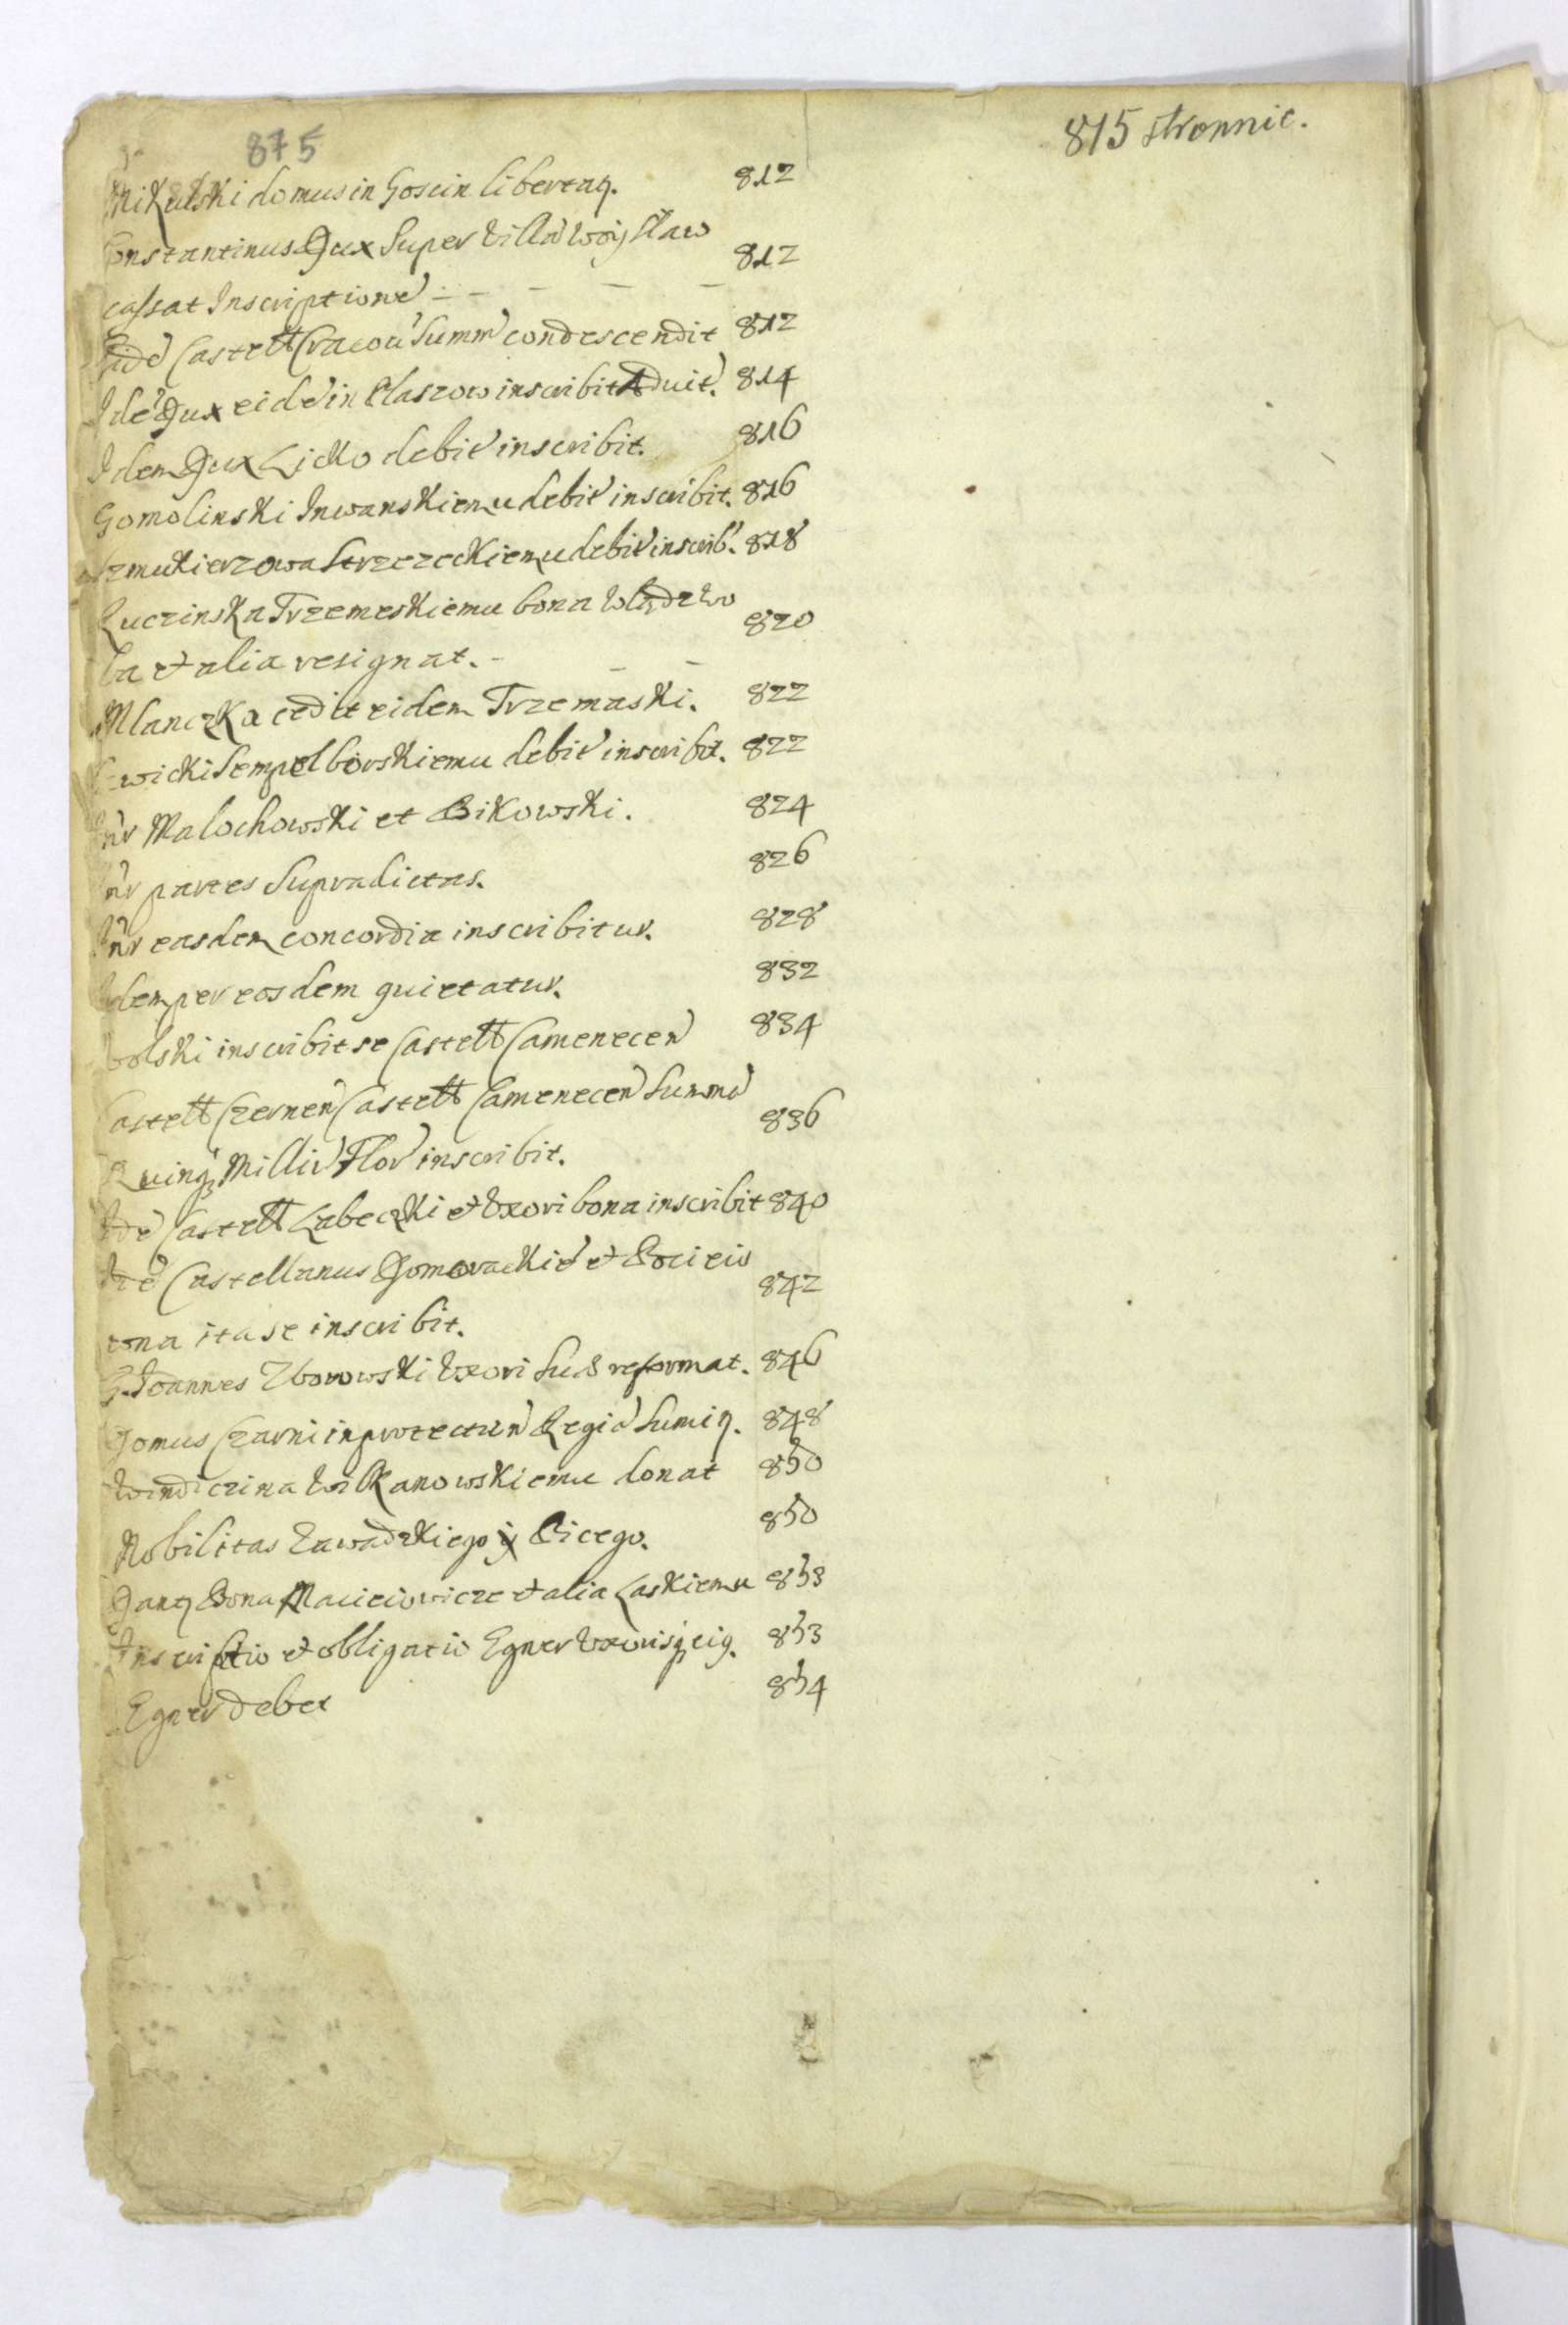 875
815 stronnic.
Mikulski domus in Goscin libertaꝗ. 812
Constantinus Dux Super Villa Woyslaw
cassat Inscriptione - - - - 812
Eide Castell Cracou Summ condescendit 812
Ide Dux eide in Plaszow inscribit Aduit. 814
Idem Dux Licko debit inscribit. 816
Gomolinski Inwanskiemu debit inscribit. 816
Szmukierzowa Strzezeckiemu debit inscrib. 818
Ruczinska Trzemeskiemu bona
la et alia resignat. - - - 820
Mlanczka cedit eidem Trzemaski. 822
Sempelborskiemu debit inscribit. 822
Inr Malochowski et Bikowski. 824
Inr partes Supradictas. 826
Inr easdem concordia inscribitur. 828
Idem per eosdem quietatur. 832
inscribit se Castell Camenecen 834
Castell Czernen Castell Camenecen Summa
Quinq Millia Flor inscribit. 836
Ide Castell Labeczki et Uxori bona inscribit 840
Ide Castellanus Domorackie et Sociei
bona ita se inscribit. 842
G. Joannes Zborowski Uxori Sua reformat. 846
Domus Czarni in protectun Regia Sumiꝗ. 848
donat 850
Nobilitas Zawadzkiego y Cicego. 850
Danꝗ Bona Macieiowicze et alia Laskiemu 853
Inscriptio et obligatio Egner Uxorisq eiꝗ. 853
Egner debet 854